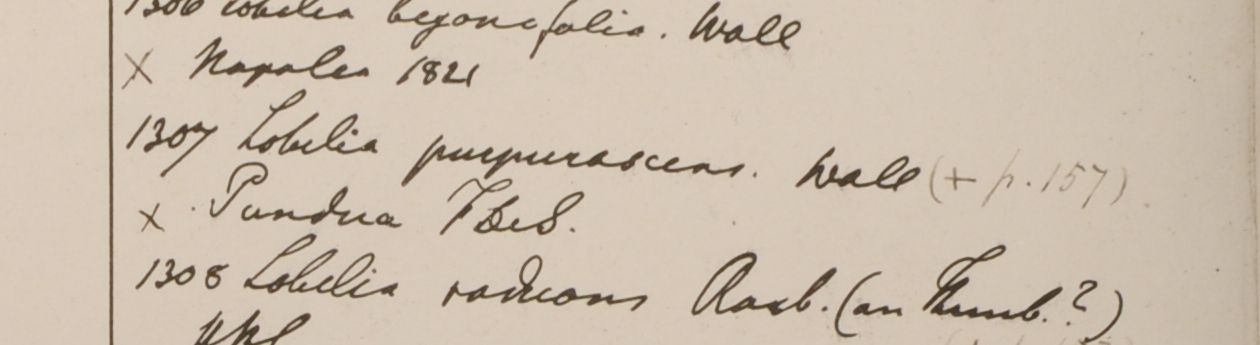 1306 Lobelia begonifolia. Wall
x Napalea 1821
1307 Lobelia purpurascens. Wall (+ p. 157)
x Pundua
1308 Lobelia radicans Roxb. (an Thunb.?)